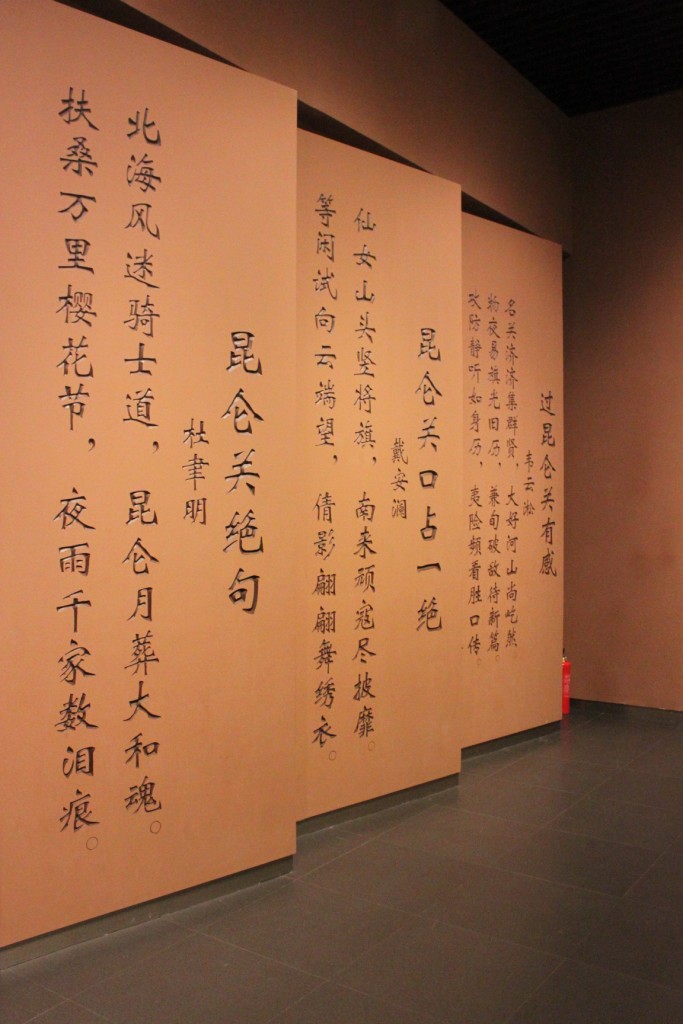 过昆仑关有感
韦云淞
名关济济集群贤，大好河山尚屹然。
夜易旗光旧历，兼旬破敌待新篇。
攻防静听如身历，夷险频看胜口传。
昆仑关口占一绝
戴安澜
仙女山头竖将旗，南来顽寇尽披靡。
等闲试向云端望，倩影翩翩舞绣衣。
昆仑关绝句
杜聿明
北海风迷骑士道，昆仑月葬大和魂。
扶桑万里樱花节，夜雨千家数泪痕。